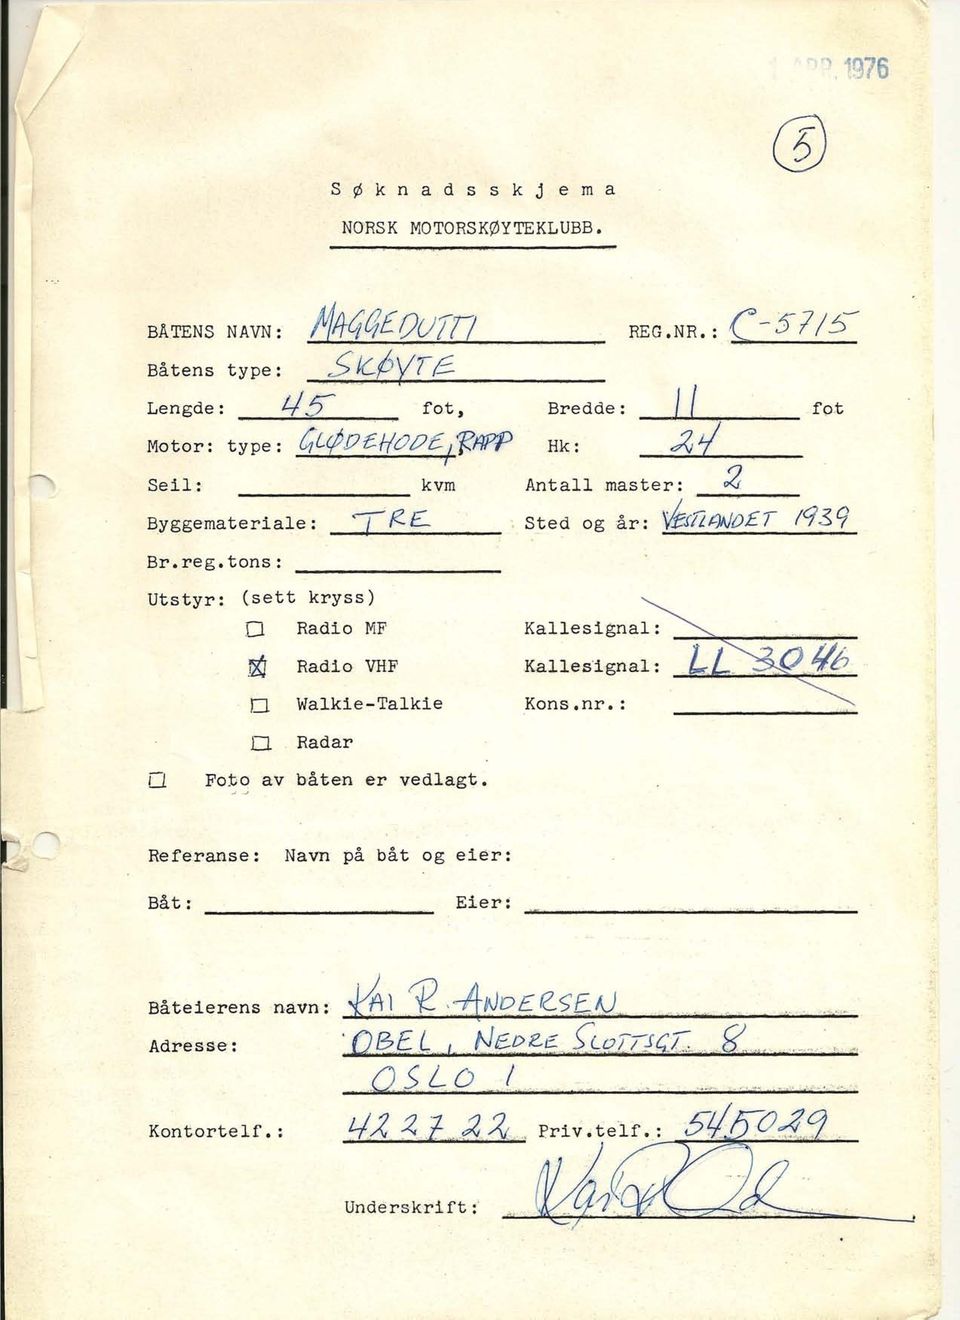 APR. 1976
5
Søknadsskjema
NORSK MOTORSKØYTEKLUBB.
BÅTENS NAVN: MAGGEDUTTI REG.NR.: C-5715
Båtens type: SKØYTE
Lengde: 45 fot, Bredde: 11 fot
Motor: type: GLØDEHODE, RAPP Hk: 24
Seil: kvm Antall master: 2
Byggemateriale: TRE Sted og år: VESTLANDET 1939
Br.reg.tons:
Utstyr: (sett kryss)
Radio MF Kallesignal:
Radio VHF Kallesignal: LL 3046
Walkie-Talkie Kons.nr.:
Radar
Foto av båten er vedlagt.
Referanse: Navn på båt og eier:
Båt: Eier:
Båteierens navn: KAI R. ANDERSEN
Adresse: OBEL, NEDRE SLOTTSGT. 8
OSLO 1
Kontortelf.: 42 27 22 Priv.telf.: 545029
Underskrift: